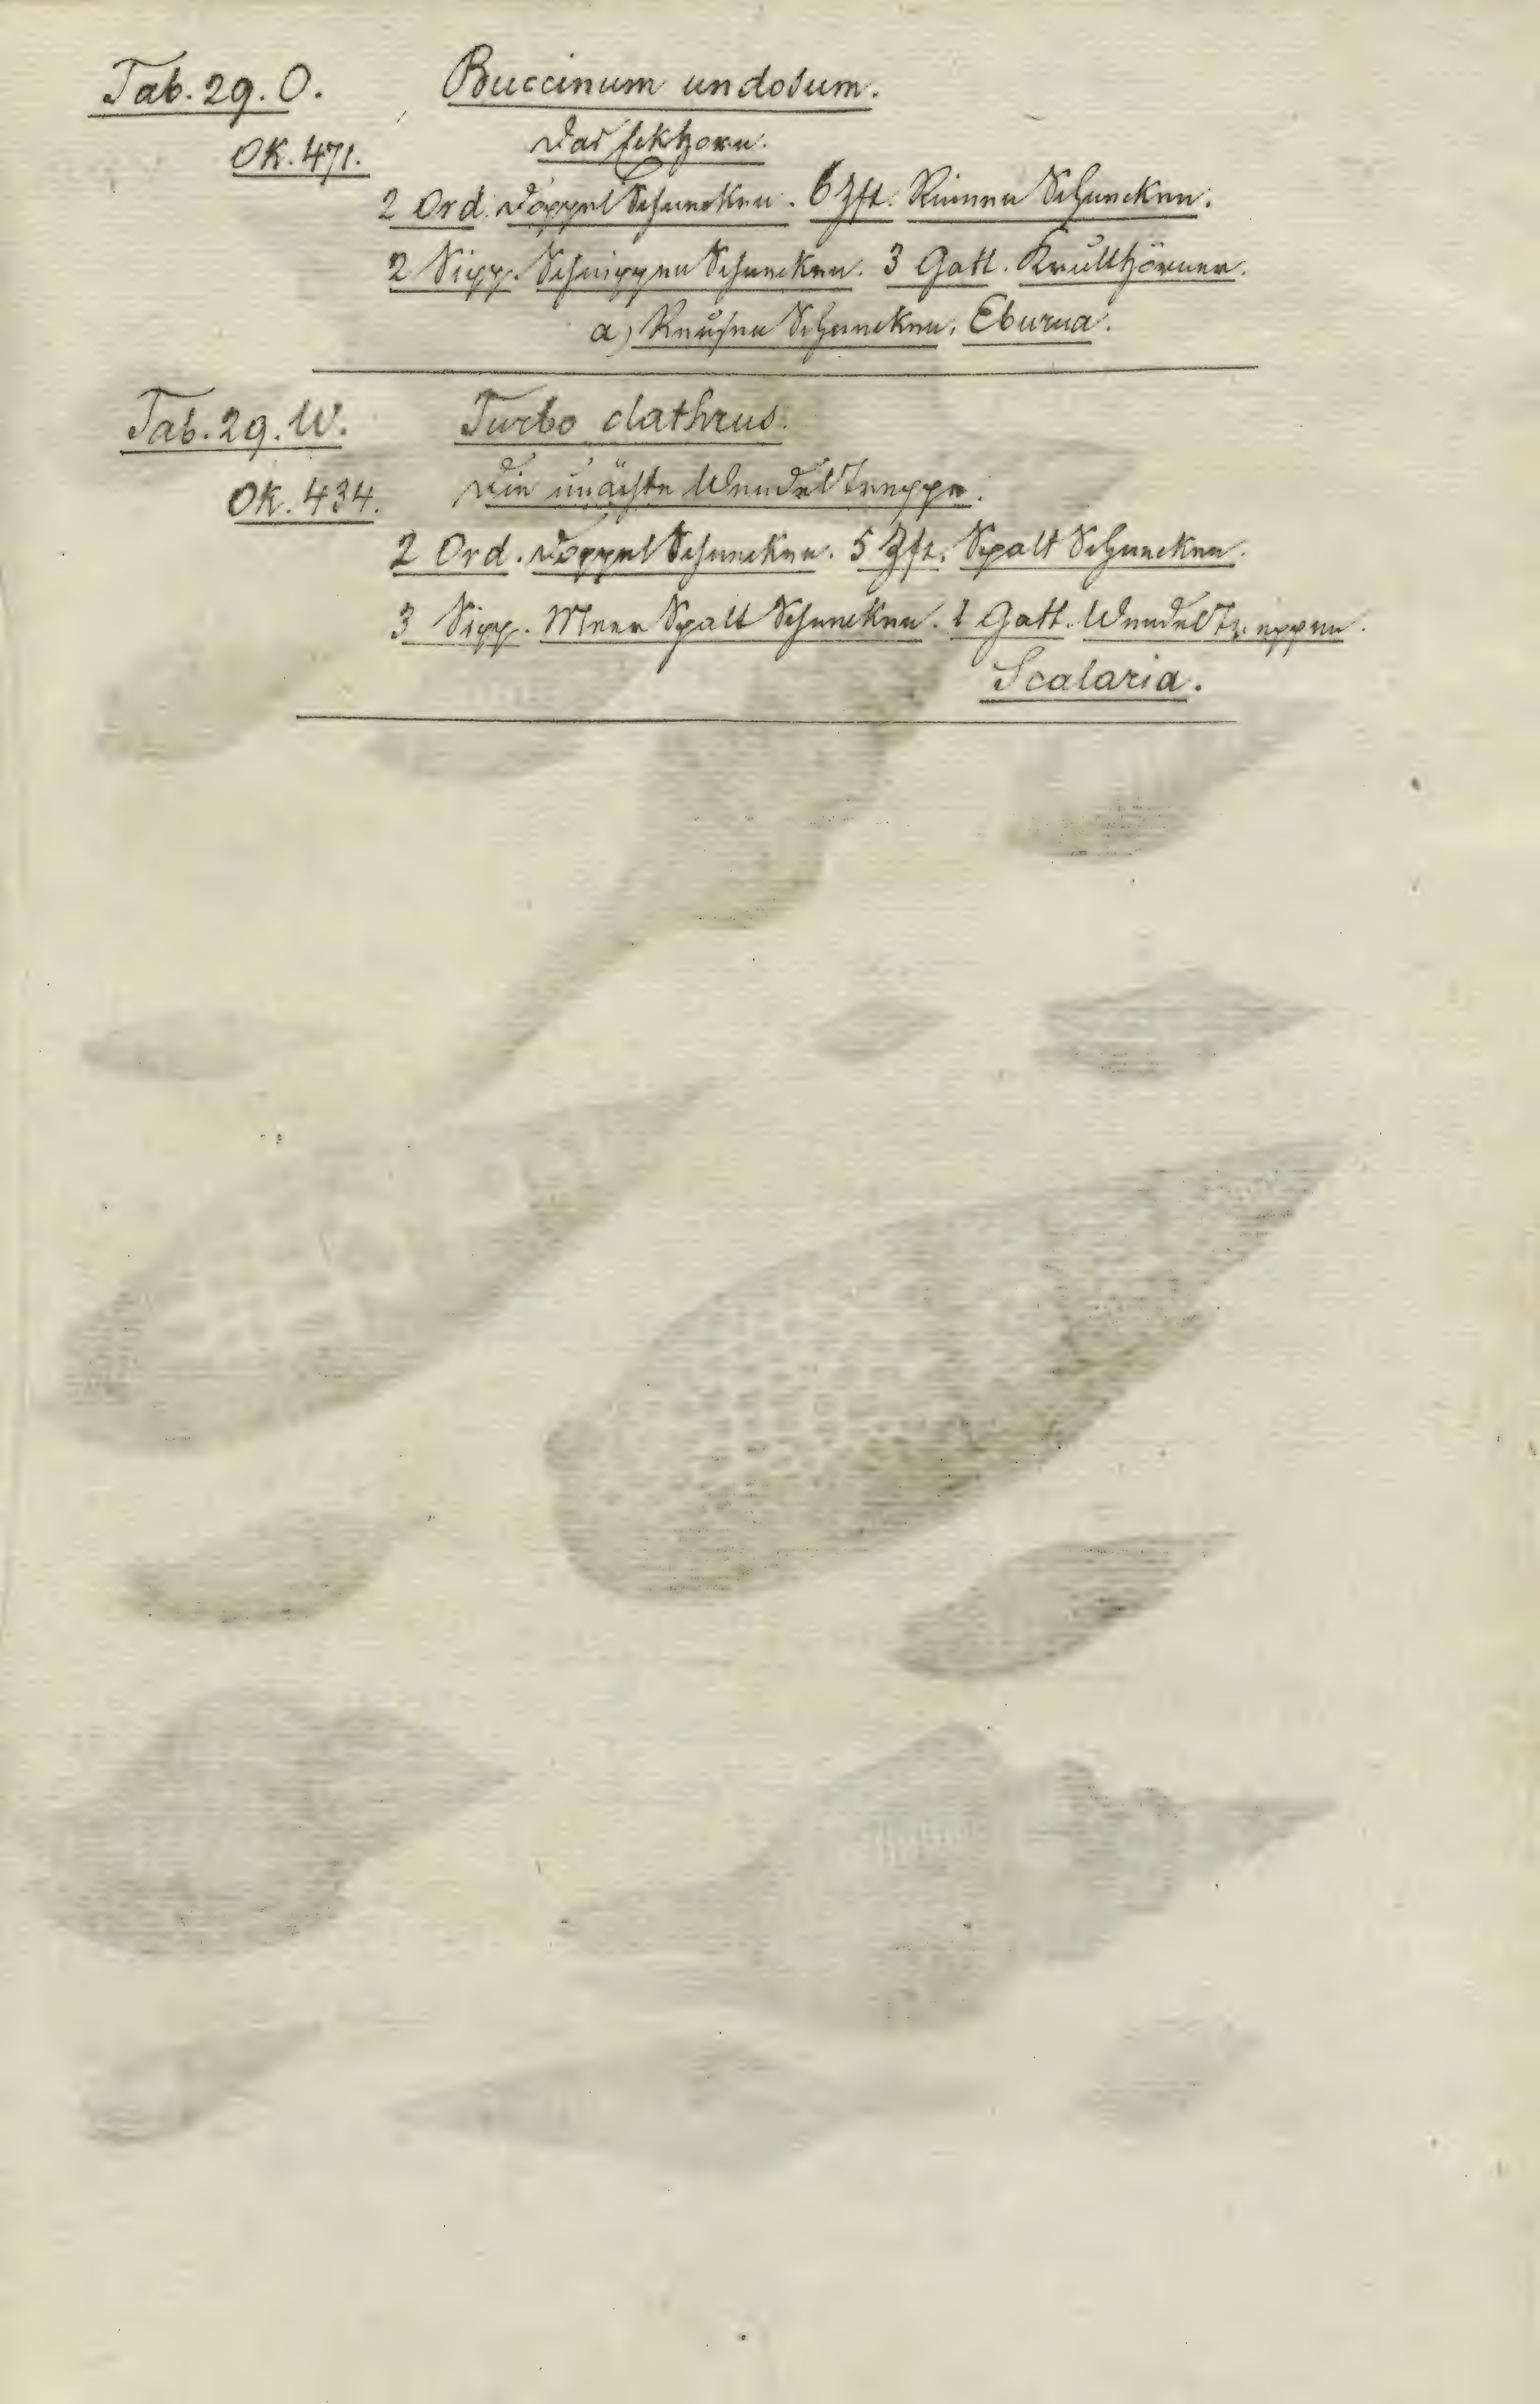 Tab. 29. O. Buccinum undosum.
OK. 471. Das
2 Ord. Doppel Schnecken. 6 Zft. Rinnen Schnecken.
2 Sipp. Schnippen Schnecken. 3 Gatt. Krullhörner.
a) Schnecken, Eburna.
Tab. 29. W. Turbo clathrus.
OK. 434. Die unächte Wendeltreppe.
2 Ord. Doppel Schnecken. 5 Zft. Spalt Schnecken.
3 Sipp. Meer Spalt Schnecken. 1 Gatt. Wendeltreppen.
Scalaria.